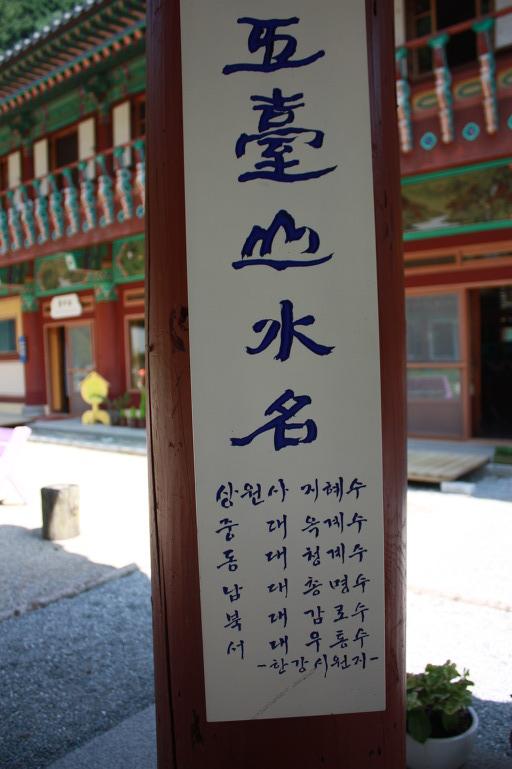 五臺山水名
상원사 지혜수
중 대 옥계수
동 대 청계수
남 대 총명수
북 대 감로수
서 대 우통수
-한강시원지-